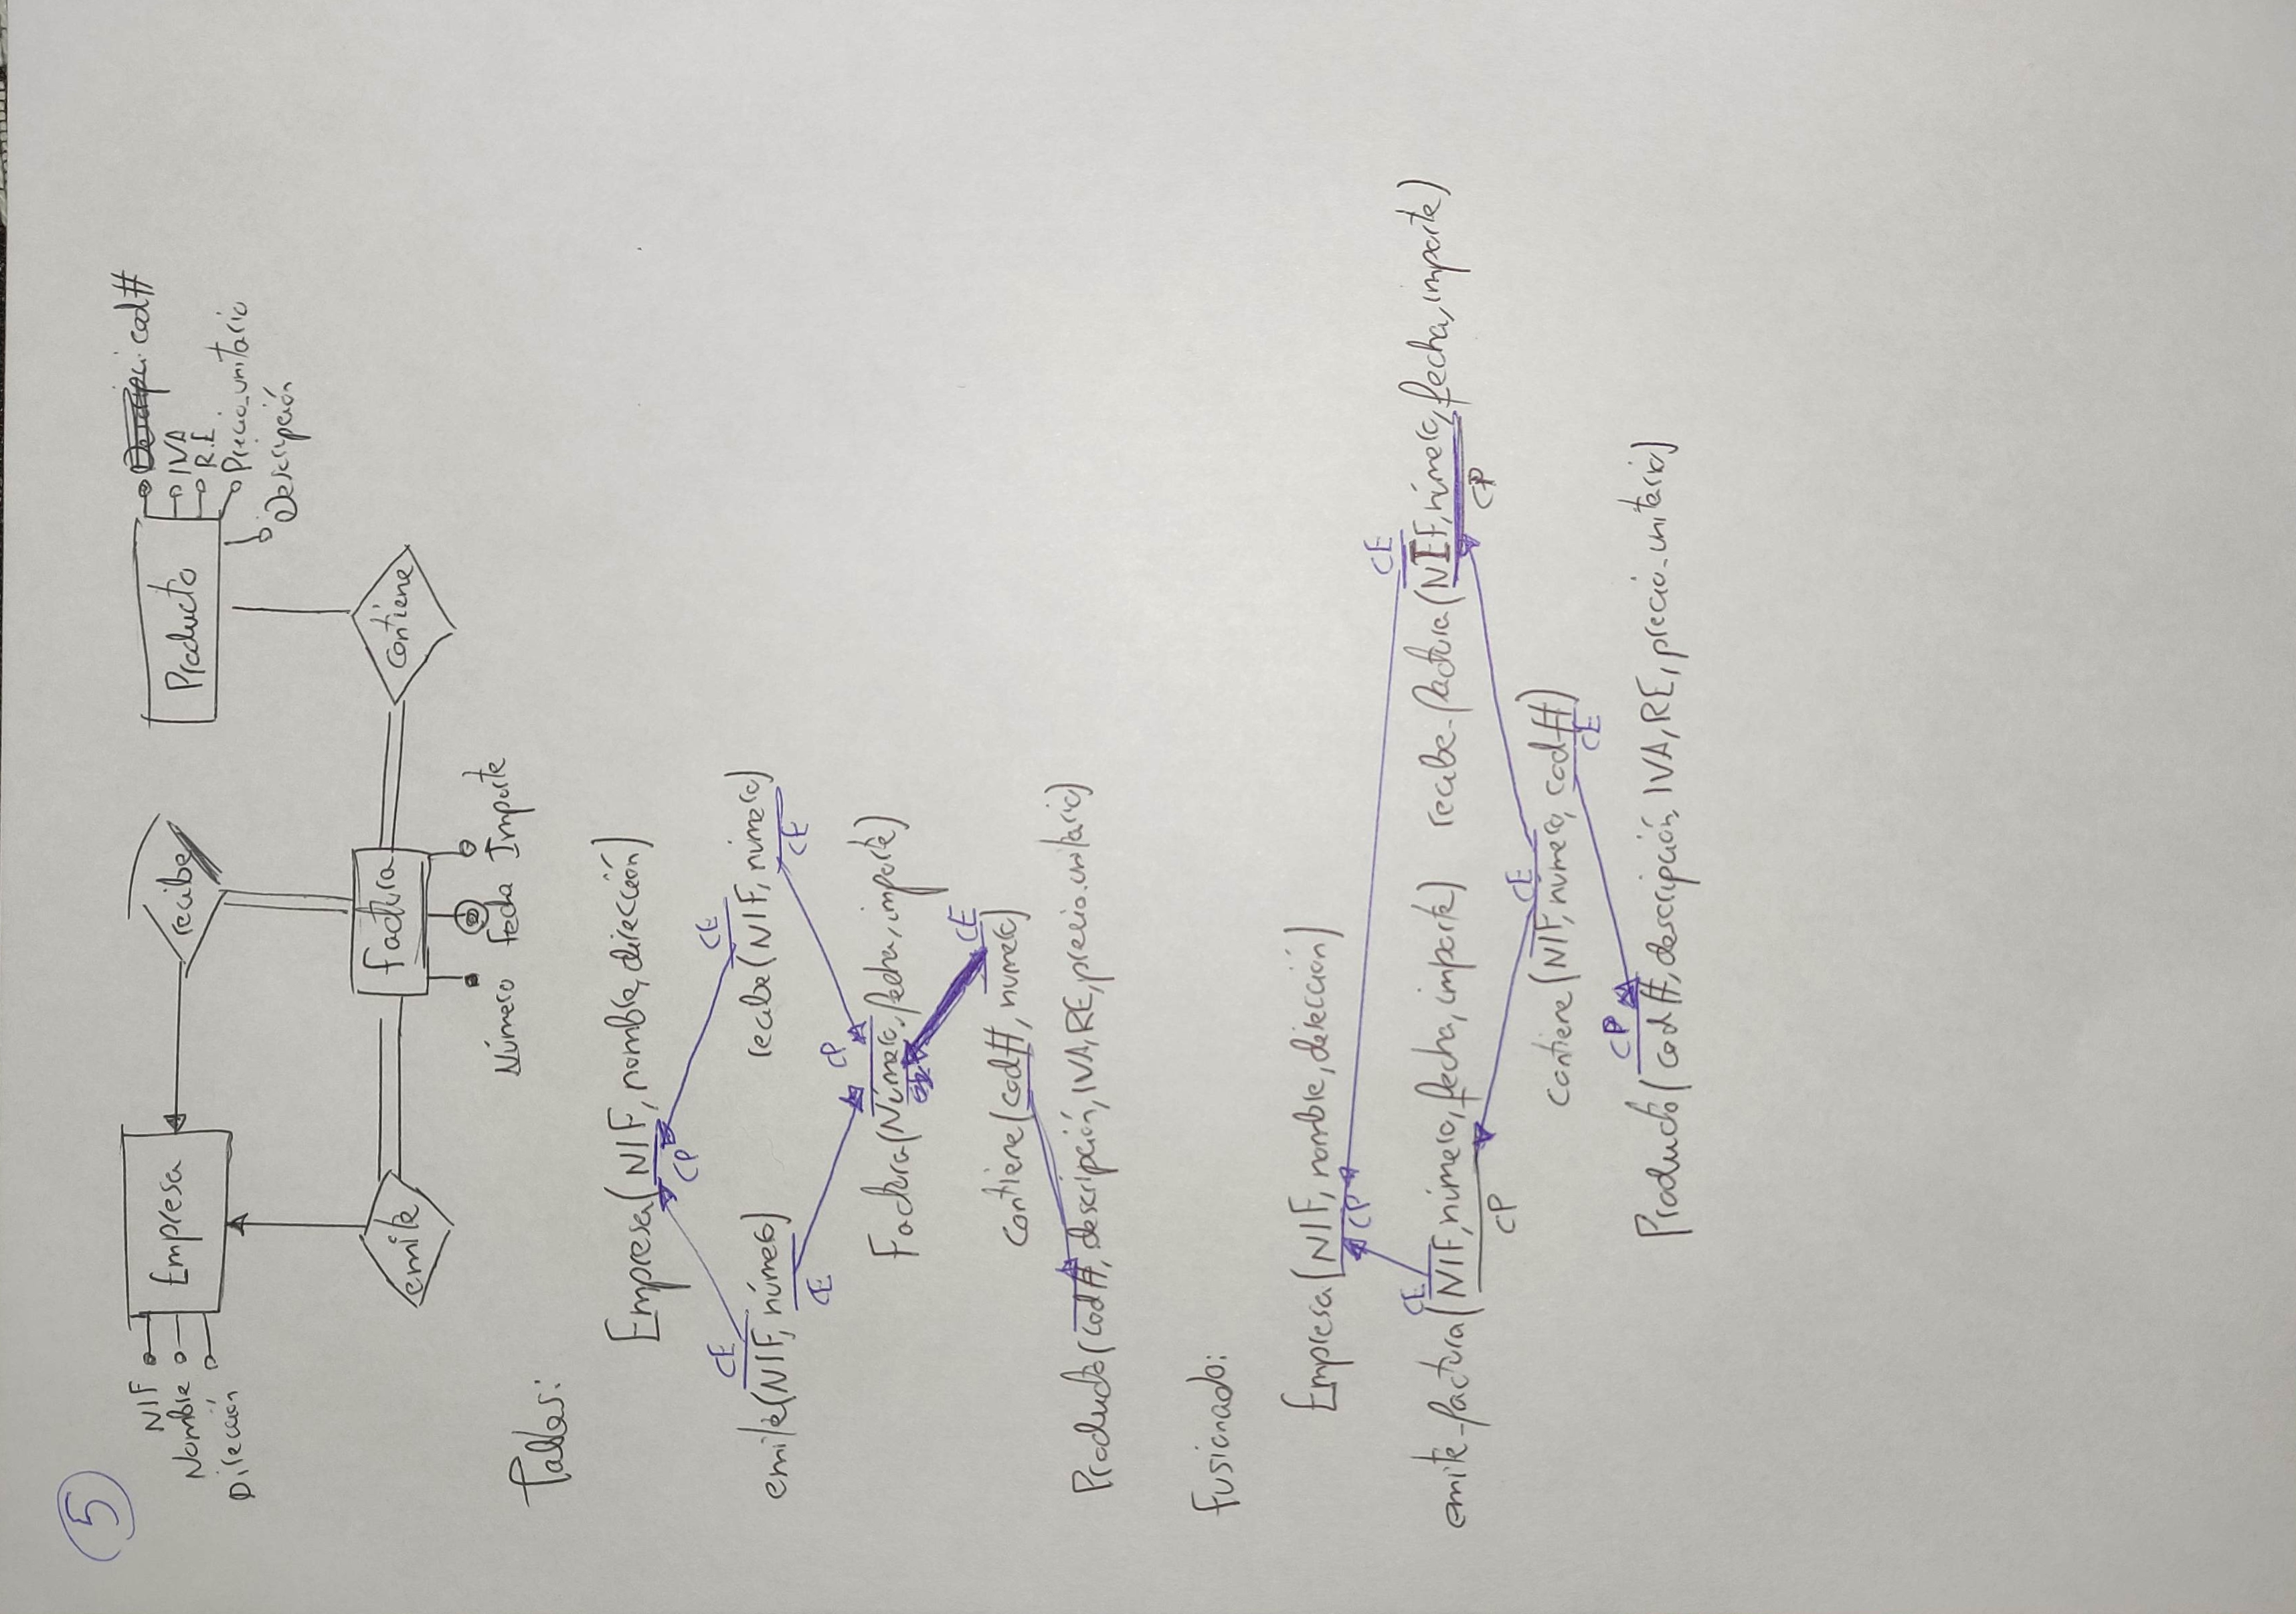 5
NIF
Nombre
Dirección
Empresa
recibe
Producto
cod#
IVA
R.E
Precio_unitario
Descripción
emite
factura
contiene
Número fecha Importe
Tablas:
Empresa(NIF, nombre, dirección)
CP
CE CE
emite(NIF, número) recibe(NIF, número)
CE CE
CP
Factura(Número, fecha, importe)
CE
contiene(cod#, numero)
Producto(cod#, descripción, IVA, RE, precio_unitario)
fusionado:
Empresa(NIF, nombre, dirección)
CP
CE CE
emite_factura(NIF, número, fecha, importe) recibe_factura(NIF, número, fecha, importe)
CP CP
CE
contiene(NIF, número, cod#)
CE
CP
Producto(cod#, descripción, IVA, RE, precio_unitario)